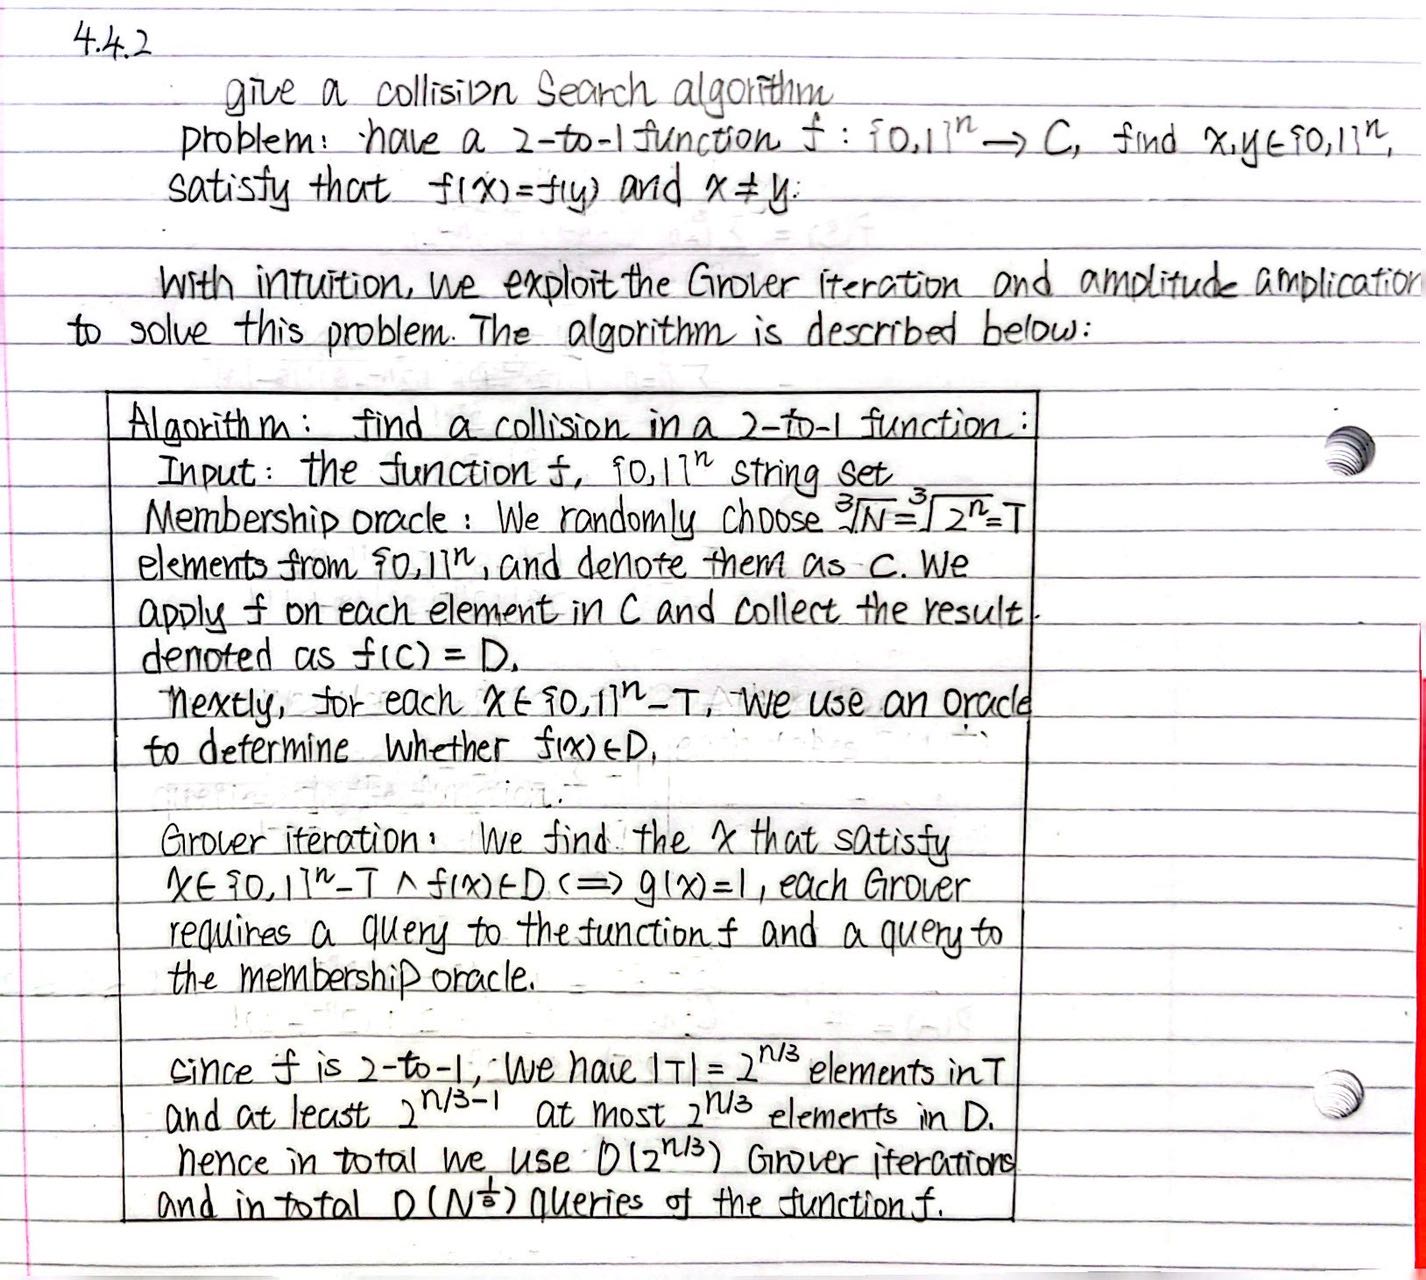 4.4.2
give a collision Search algorithm
problem: have a 2-to-1 function f : {0,1}ⁿ → C, find x,y ∈ {0,1}ⁿ,
satisfy that f(x)=f(y) and x ≠ y.
With intuition, we exploit the Grover iteration and amplitude amplication
to solve this problem. The algorithm is described below:
Algorithm: find a collision in a 2-to-1 function:
Input: the function f, {0,1}ⁿ string set
Membership oracle: We randomly choose ∛N = ∛2ⁿ = T
elements from {0,1}ⁿ, and denote them as C. We
apply f on each element in C and collect the result
denoted as f(C) = D.
nextly, for each x ∈ {0,1}ⁿ - T, we use an oracle
to determine whether f(x) ∈ D.
Grover iteration: We find the x that satisfy
x ∈ {0,1}ⁿ - T ∧ f(x) ∈ D ⟺ g(x)=1, each Grover
requires a query to the function f and a query to
the membership oracle.
since f is 2-to-1, we have |T| = 2^{n/3} elements in T
and at least 2^{n/3-1} at most 2^{n/3} elements in D.
hence in total we use O(2^{n/3}) Grover iterations
and in total O(N^{1/3}) queries of the function f.